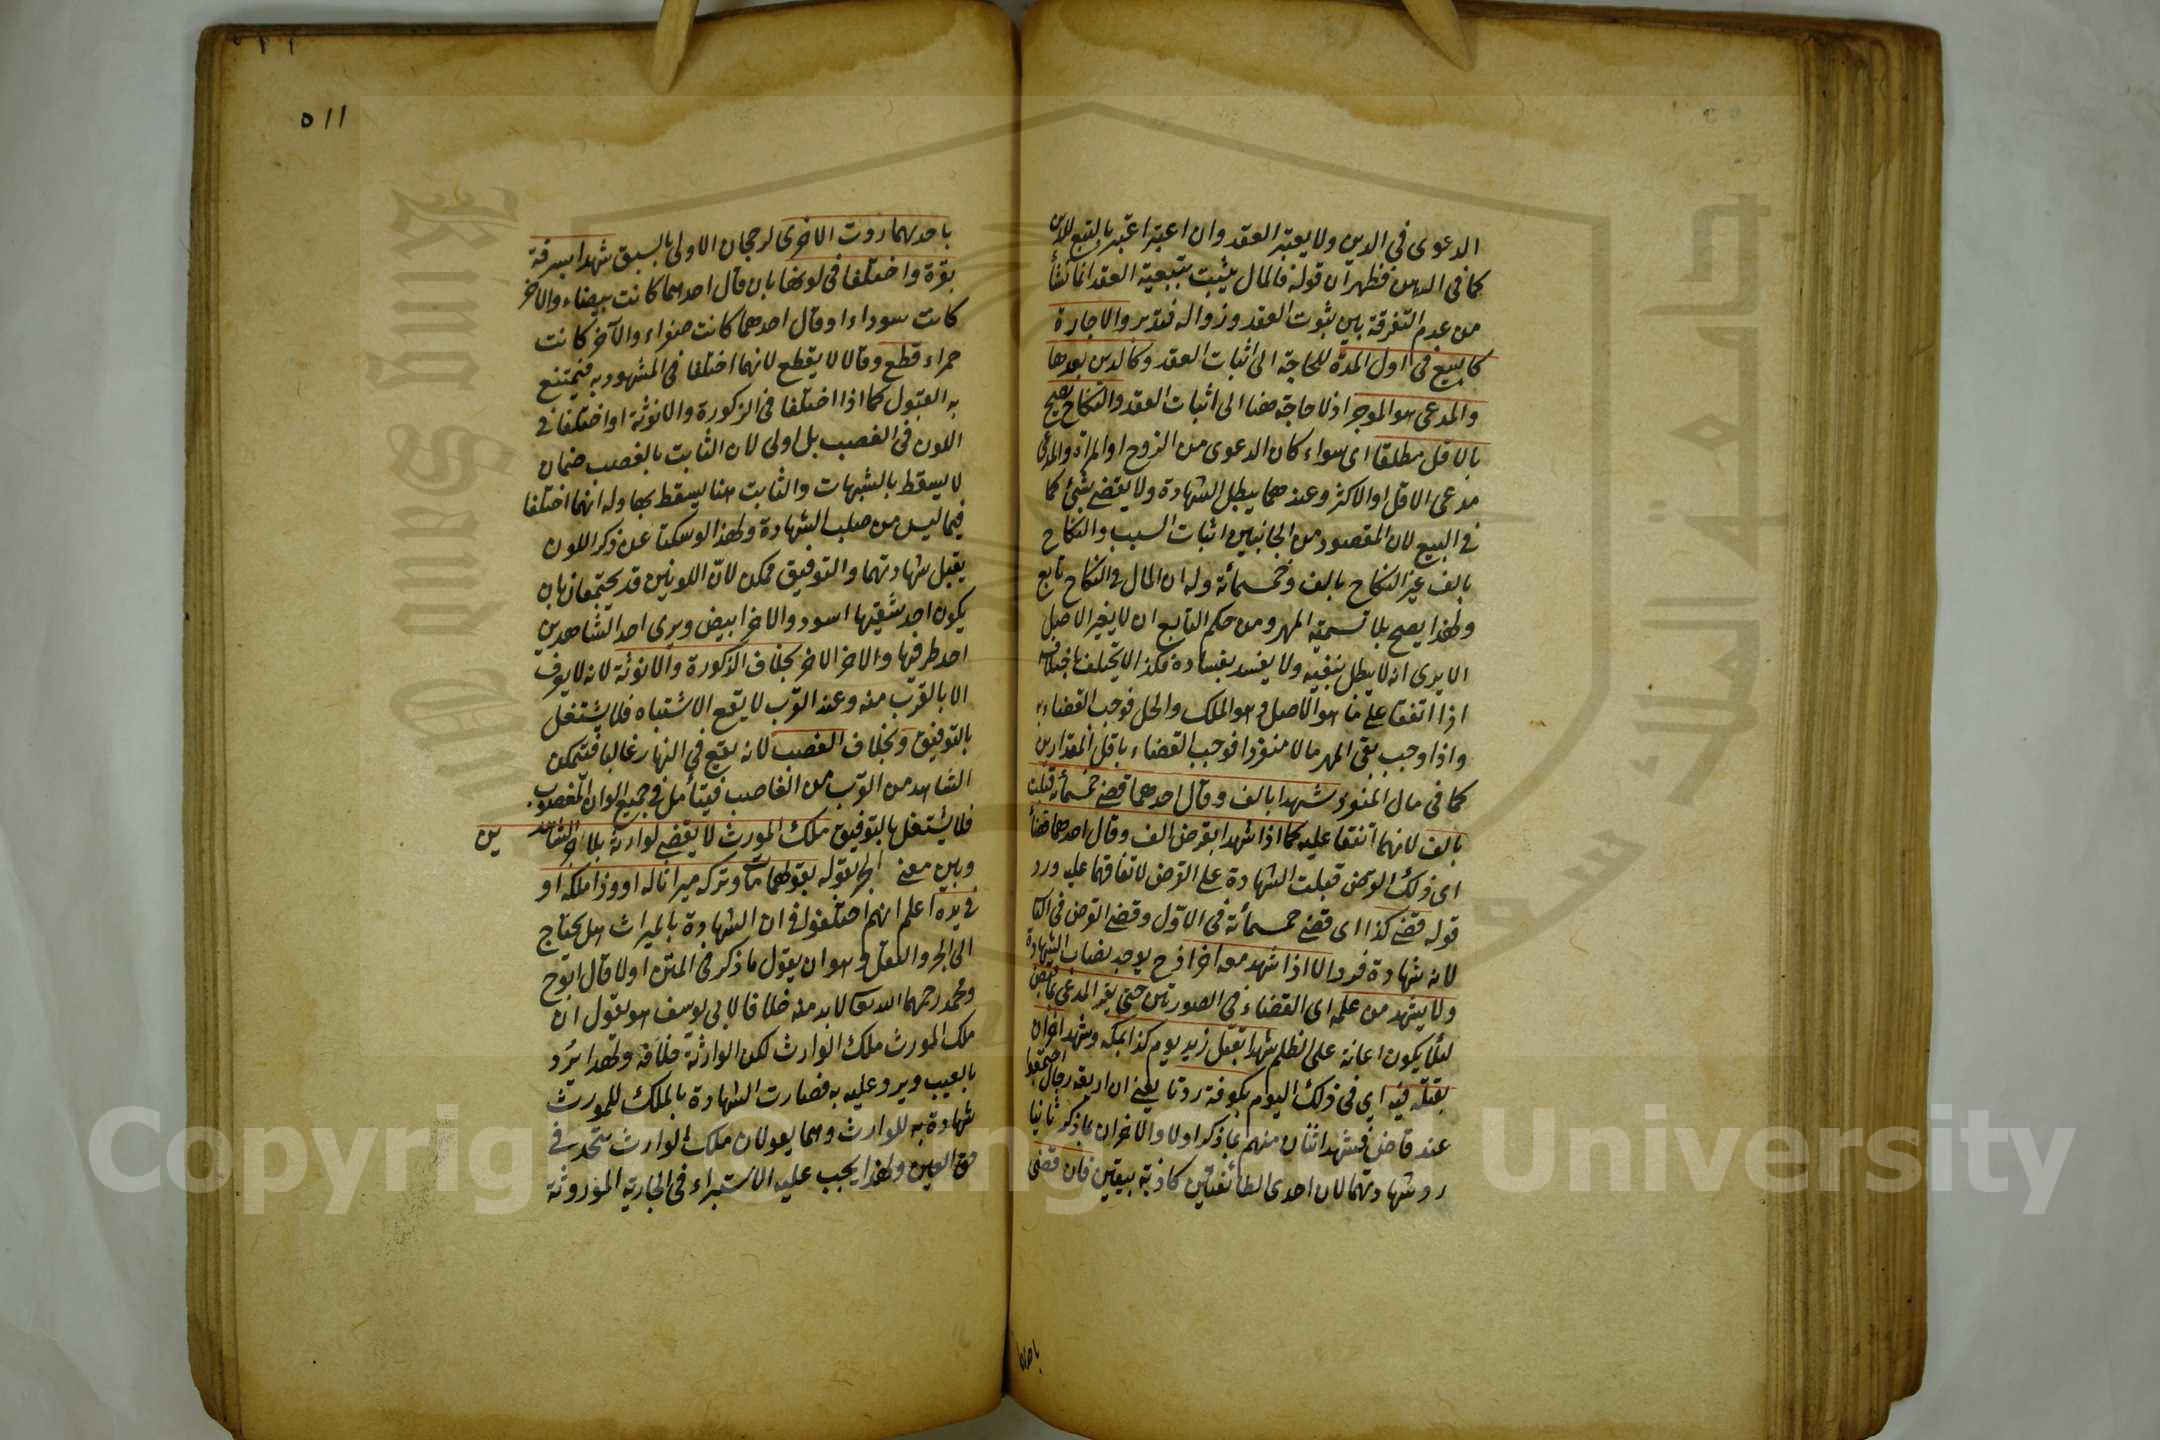 الدعوى فى الدين ولا يعتبر العقد وان اعتبر اعتبر بالتبع للدين
كما فى الدين فظهر ان قوله فالمال يثبت بتبعية العقد انما نشأ
من عدم التفرقة بين ثبوت العقد وزواله فتدبر والاجارة
كالبيع فى اول المدة للحاجة الى اثبات العقد وكالدين بعدها
والمدعى هو الموجر اذ لا حاجة هنا الى اثبات العقد والنكاح يصح
بالاقل مطلقا اى سواء كان الدعوى من الزوج او المراة والمدعى
مدعى الاقل او الاكثر وعندهما يبطل الشهادة ولا يقضى بشئ كما
فى البيع لان المقصود من الجانبين اثبات السبب والنكاح
بالف غير النكاح بالف وخمسمائة وله ان المال فى النكاح تابع
ولهذا يصح بلا تسمية المهر ومن حكم التابع ان لا يغير الاصل
الا يرى انه لا يبطل بنفيه ولا يفسد بفساده فكذا لا يختلف باختلافه
اذا اتفقا على ما هو الاصل وهو الملك والحل فوجب القضاء به
واذا وجب بقى المهر مالا منفردا فوجب القضاء باقل المقدارين
كما فى مال المنفرد شهدا بالف وقال احدهما قضى خمسمائة قبلت
بالف لانهما اتفقا عليه كما اذا شهدا بقرض الف وقال احدهما قضاه
اى ذلك القرض قبلت الشهادة على القرض لاتفاقهما عليه ورد
قوله قضى كذا اى قضى خمسمائة فى الاول وقضى القرض فى الثانى
لانه شهادة فرد الا اذا شهد معه اخر اذ ح يوجد نصاب الشهادة
ولا يشهد من علمه اى القضاء فى الصورتين حتى يقر المدعى بما قبض
لئلا يكون اعانة على الظلم شهدا بقتل زيد يوم كذا بمكة وشهد اخران
بقتله فيه اى فى ذلك اليوم بكوفة ردتا يعنى ان اربعة رجال اجتمعوا
عند قاض فشهد اثنان منهم بما ذكر اولا والاخران بما ذكر ثانيا
رد شهادتهما لان احدى الطائفتين كاذبة بيقين فان قضى
باحديهما
٥١١
باحديهما ردت الاخرى لرجحان الاولى بالسبق شهدا بسرقة
بقرة واختلفا فى لونها بان قال احدهما كانت بيضاء والاخر
كانت سوداء او قال احدهما كانت صفراء والآخر كانت
حمراء قطع وقالا لا يقطع لانهما اختلفا فى المشهود به فيمتنع
به القبول كما اذا اختلفا فى الذكورة والانوثة او اختلفا فى
اللون فى الغصب بل اولى لان الثابت بالغصب ضمان
لا يسقط بالشبهات والثابت هنا يسقط بها وله انهما اختلفا
فيما ليس من صلب الشهادة ولهذا لو سكتا عن ذكر اللون
يقبل شهادتهما والتوفيق ممكن لان اللونين قد يجتمعان بان
يكون احد شقيها اسود والاخر ابيض ويرى احد الشاهدين
احد طرفيها والاخر الاخر بخلاف الذكورة والانوثة لانه لا يعرف
الا بالقرب منه وعند القرب لا يقع الاشتباه فلا يشتغل
بالتوفيق وبخلاف الغصب لانه يقع فى النهار غالبا فتمكن
الشاهد من القرب من الغاصب فيتأمل فى جميع الوان المغصوب
فلا يشتغل بالتوفيق ملك المورث لا يقضى لوارثه بلا جر الشاهدين
وبين معنى الجر بقوله بقولهما مات وتركه ميراثا له او وذا ملكه او
فى يده اعلم انهم اختلفوا فى ان الشهادة بالميراث هل يحتاج
الى الجر والنقل وهو ان يقول ما ذكر فى المتن اولا قال ابوح
ومحمد رحمهما الله تعا لابد منه خلافا لابى يوسف هو يقول ان
ملك المورث ملك الوارث لكن الوارثة خلافة ولهذا يرد
بالعيب ويرد عليه به فصارت الشهادة بالملك للمورث
شهادة به للوارث وهما يقولان ملك الوارث يتجدد فى
حق العين ولهذا يجب عليه الاستبراء فى الجارية الموروثة
Copyright © King Saud University
جامعة الملك سعود
King Saud University